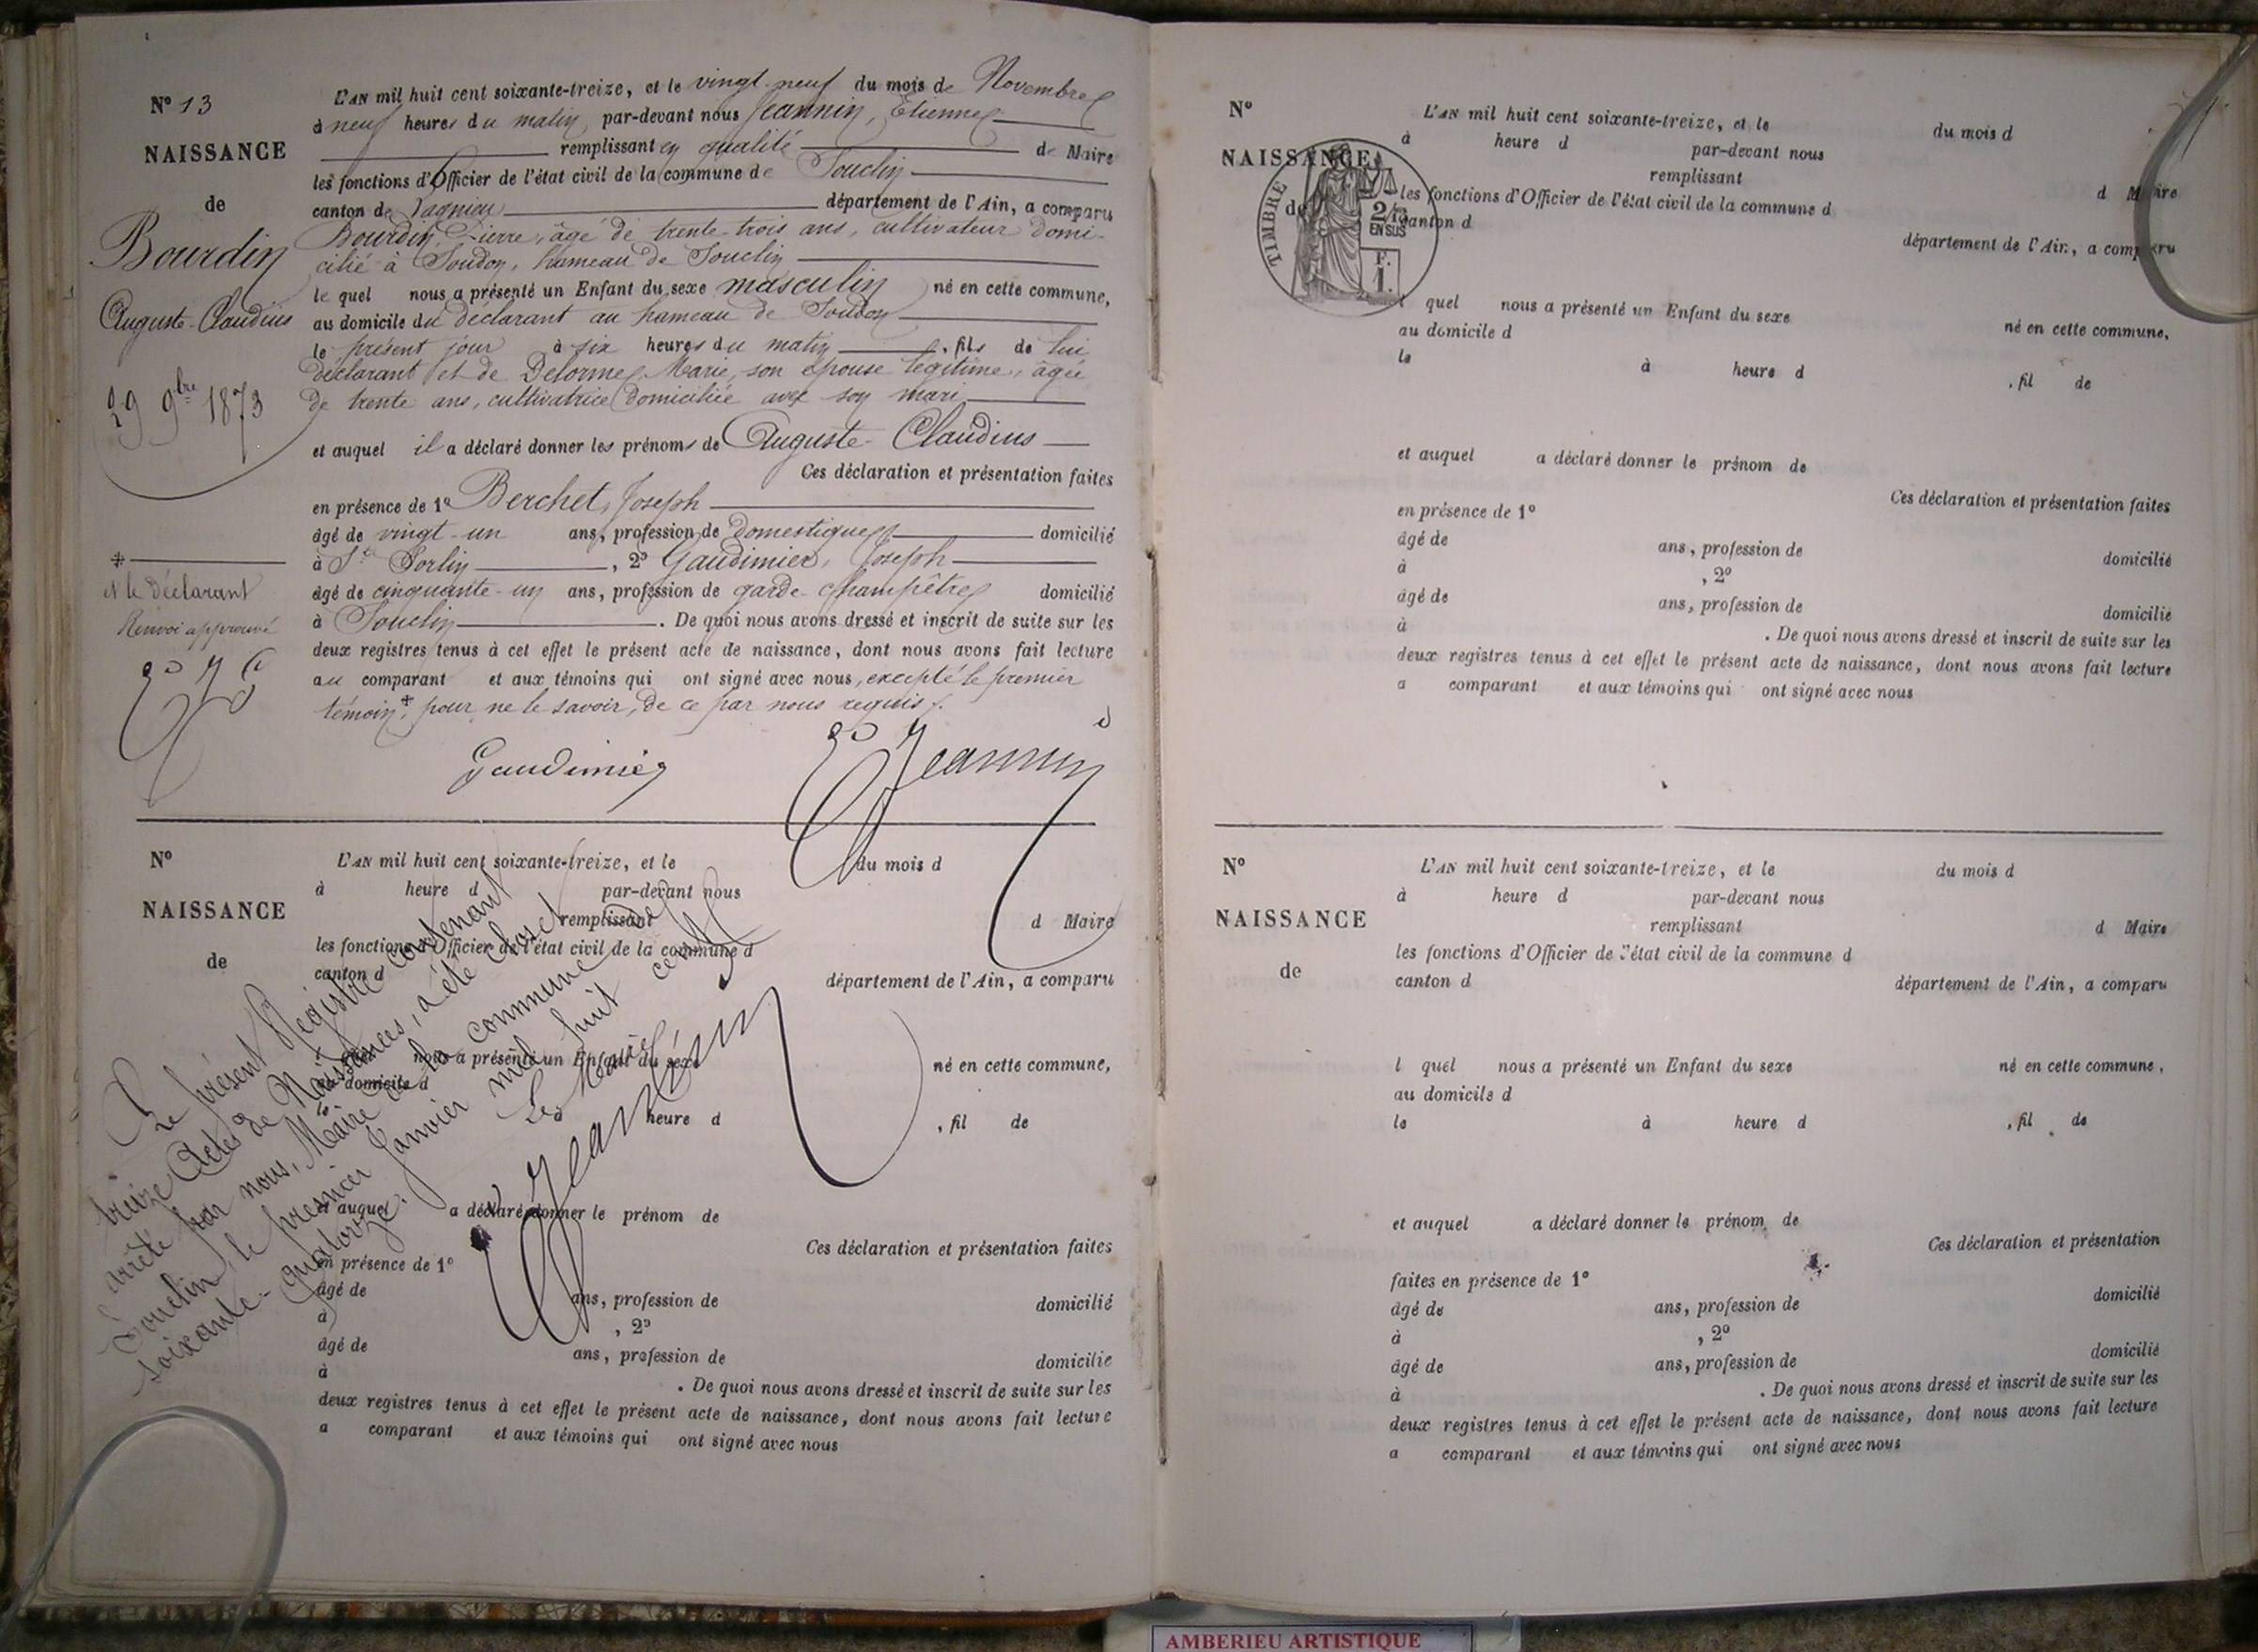 N° 13
NAISSANCE
de
Bourdin
Auguste-Claudius
29 9bre 1873
L'AN mil huit cent soixante-treize, et le vingt-neuf du mois de Novembre
à neuf heures du matin, par-devant nous Jeannin, Etienne
remplissant en qualité de Maire
les fonctions d'Officier de l'état civil de la commune de Souclin
canton de Lagnieu département de l'Ain, a comparu
Bourdin, Pierre, âgé de trente-trois ans, cultivateur domi-
cilié à Soudon, hameau de Souclin
le quel nous a présenté un Enfant du sexe masculin né en cette commune,
au domicile du déclarant au hameau de Soudon
le présent jour à six heures du matin, fils de lui
déclarant et de Delorme, Marie, son épouse légitime, âgée
de trente ans, cultivatrice domiciliée avec son mari
et auquel il a déclaré donner les prénoms de Auguste-Claudius
Ces déclaration et présentation faites
en présence de 1° Berchet, Joseph
âgé de vingt-un ans, profession de domestique domicilié
à St Sorlin, 2° Gaudimier, Joseph
âgé de cinquante-un ans, profession de garde-champêtre domicilié
à Souclin. De quoi nous avons dressé et inscrit de suite sur les
deux registres tenus à cet effet le présent acte de naissance, dont nous avons fait lecture
au comparant et aux témoins qui ont signé avec nous, excepté le premier
témoin*, pour ne le savoir, de ce par nous requis.
*
et le déclarant
Renvoi approuvé
Gaudimier
Jeannin
N°
NAISSANCE
de
L'AN mil huit cent soixante-treize, et le du mois d
à heure d par-devant nous
remplissant d Maire
les fonctions d'Officier de l'état civil de la commune d
canton d département de l'Ain, a comparu
nous a présenté un Enfant du sexe né en cette commune,
au domicile d
le à heure d , fil de
et auquel a déclaré donner le prénom de
Ces déclaration et présentation faites
en présence de 1°
âgé de ans, profession de domicilié
à , 2°
âgé de ans, profession de domicilié
à . De quoi nous avons dressé et inscrit de suite sur les
deux registres tenus à cet effet le présent acte de naissance, dont nous avons fait lecture
a comparant et aux témoins qui ont signé avec nous
Le présent Registre contenant
treize Actes de Naissances, a été clos et
arrêté par nous, Maire de la commune de
Souclin, le premier Janvier mil huit cent
soixante-quatorze.
Le Maire
Jeannin
N°
NAISSANCE
de
TIMBRE
2/10
EN SUS
F.
1.
L'AN mil huit cent soixante-treize, et le du mois d
à heure d par-devant nous
remplissant d Maire
les fonctions d'Officier de l'état civil de la commune d
canton d département de l'Ain, a comparu
l quel nous a présenté un Enfant du sexe né en cette commune,
au domicile d
le à heure d , fil de
et auquel a déclaré donner le prénom de
Ces déclaration et présentation faites
en présence de 1°
âgé de ans, profession de domicilié
à , 2°
âgé de ans, profession de domicilié
à . De quoi nous avons dressé et inscrit de suite sur les
deux registres tenus à cet effet le présent acte de naissance, dont nous avons fait lecture
a comparant et aux témoins qui ont signé avec nous
N°
NAISSANCE
de
L'AN mil huit cent soixante-treize, et le du mois d
à heure d par-devant nous
remplissant d Maire
les fonctions d'Officier de l'état civil de la commune d
canton d département de l'Ain, a comparu
l quel nous a présenté un Enfant du sexe né en cette commune,
au domicile d
le à heure d , fil de
et auquel a déclaré donner le prénom de
Ces déclaration et présentation
faites en présence de 1°
âgé de ans, profession de domicilié
à , 2°
âgé de ans, profession de domicilié
à . De quoi nous avons dressé et inscrit de suite sur les
deux registres tenus à cet effet le présent acte de naissance, dont nous avons fait lecture
a comparant et aux témoins qui ont signé avec nous
AMBERIEU ARTISTIQUE